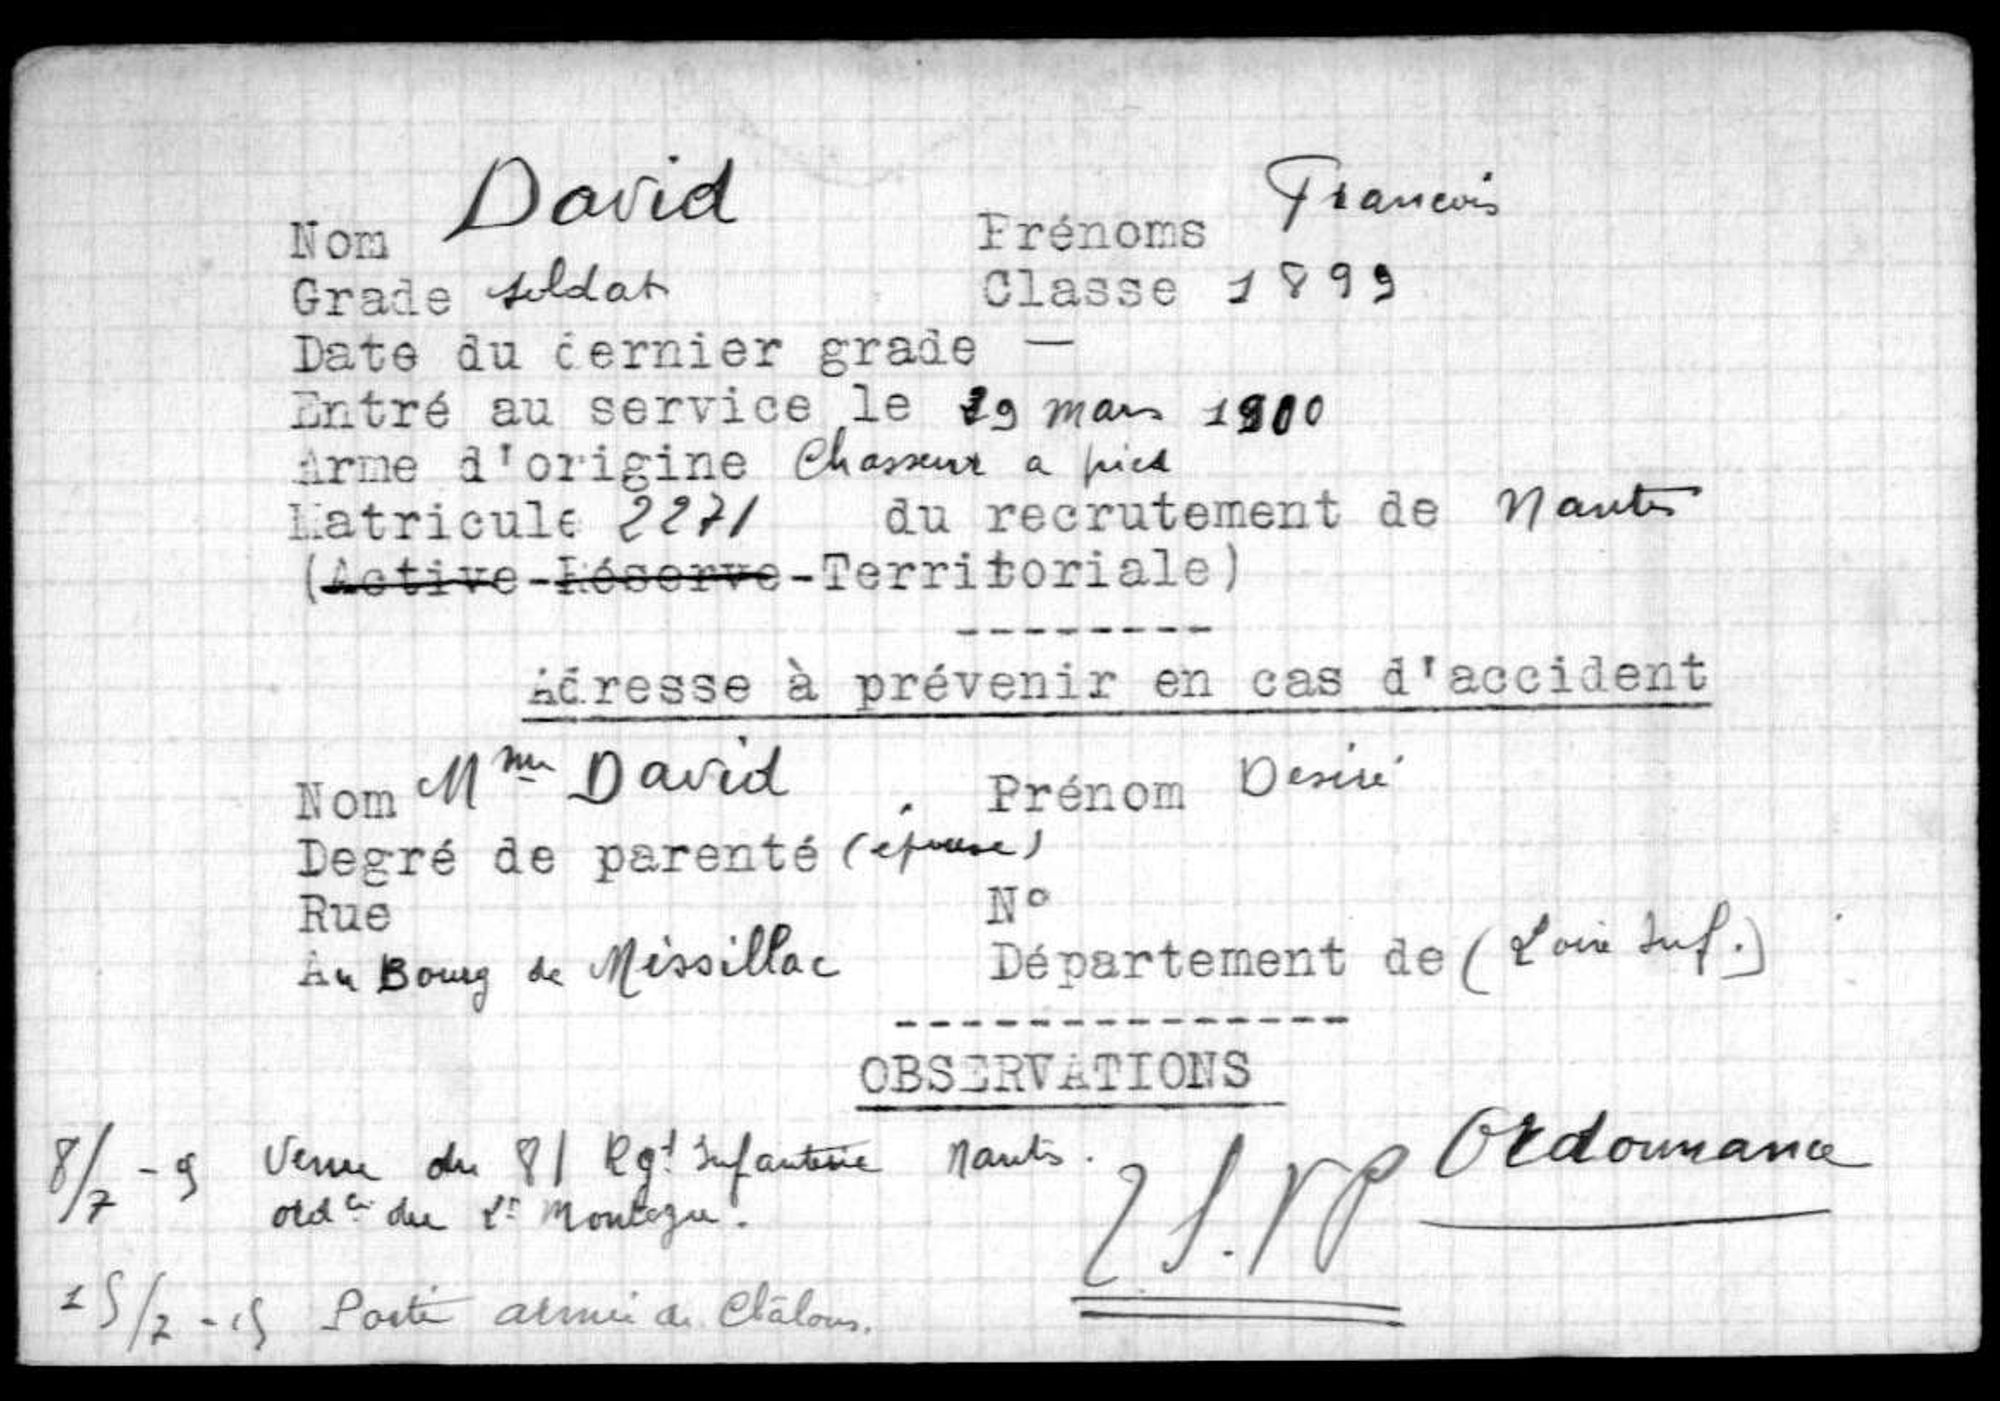 Nom David Prénoms Francois
Grade soldat Classe 1899
Date du dernier grade —
Entré au service le 29 mars 1900
Arme d'origine Chasseur a pied
Matricule 2271 du recrutement de Nantes
(Active-Réserve-Territoriale)
--------
Adresse à prévenir en cas d'accident
Nom Mme David Prénom Desiré
Degré de parenté (épouse)
Rue N°
Au Bourg de Missillac Département de (Loire Inf.)
---------------
OBSERVATIONS
Ordonnance
8/7 - 9 Venu du 81 Rgt Infanterie Nantes.
ordce du Lt Montagu.
15/7 - 15 Parti armée de Châlons.